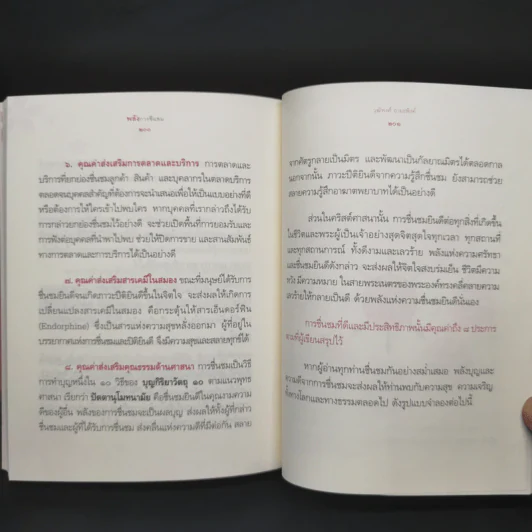 พลังการชื่นชม
๒๐๐
๖. คุณค่าส่งเสริมการตลาดและบริการ การตลาดและ
บริการที่ยกย่องชื่นชมลูกค้า สินค้า และบุคลากรในตลาดบริการ
ตลอดจนบุคคลสำคัญที่ต้องการจะนำเสนอเพื่อให้เป็นแบบอย่างที่ดี
หรือต้องการให้ใครเข้าไปพบใคร หากบุคคลที่เรากล่าวถึงได้รับ
การกล่าวยกย่องชื่นชมไว้อย่างดี จะช่วยเปิดพื้นที่การยอมรับและ
การพึงต่อบุคคลที่นำพาไปพบ ช่วยให้ปิดการขาย และสานสัมพันธ์
ทางการตลาดและการบริการได้เป็นอย่างดี
๗. คุณค่าส่งเสริมสารเคมีในสมอง ขณะที่มนุษย์ได้รับการ
ชื่นชมยินดีจนเกิดภาวะปีติยินดีขึ้นในจิตใจ จะส่งผลให้เกิดการ
เปลี่ยนแปลงสารเคมีในสมอง คือกระตุ้นให้สารเอ็นดอร์ฟิน
(Endorphine) ซึ่งเป็นสารแห่งความสุขหลั่งออกมา ผู้ที่อยู่ใน
บรรยากาศแห่งการชื่นชมและปีติยินดี จึงมีความสุขและสลายทุกข์ได้
๘. คุณค่าส่งเสริมคุณธรรมด้านศาสนา การชื่นชมเป็นวิธี
การทำบุญหนึ่งใน ๑๐ วิธีของ บุญกิริยาวัตถุ ๑๐ ตามแนวพุทธ
ศาสนา เรียกว่า ปัตตานุโมทนามัย คือชื่นชมยินดีในคุณงามความ
ดีของผู้อื่น พลังของการชื่นชมจะเป็นผลบุญ ส่งผลให้ทั้งผู้ที่กล่าว
ชื่นชมและผู้ที่ได้รับการชื่นชม ส่งคลื่นแห่งความดีที่มีต่อกัน สลาย
๒๐๑
จากศัตรูกลายเป็นมิตร และพัฒนาเป็นกัลยาณมิตรได้ตลอดกาล
นอกจากนั้น ภาวะปีติยินดีจากความรู้สึกชื่นชม ยังสามารถช่วย
สลายความรู้สึกอาฆาตพยาบาทได้เป็นอย่างดี
ส่วนในคริสต์ศาสนานั้น การชื่นชมยินดีต่อทุกสิ่งที่เกิดขึ้น
ในชีวิตและพระผู้เป็นเจ้าอย่างสุดจิตสุดใจทุกเวลา ทุกสถานที่
และทุกสถานการณ์ ทั้งดีงามและเลวร้าย พลังแห่งความศรัทธา
และชื่นชมยินดีดังกล่าว จะส่งผลให้จิตใจสงบร่มเย็น ชีวิตมีความ
หวัง มีความหมาย ในสายพระเนตรของพระองค์ทรงคลี่คลายความ
เลวร้ายให้กลายเป็นดี ด้วยพลังแห่งความชื่นชมยินดีนั่นเอง
การชื่นชมที่ดีและมีประสิทธิภาพนั้นมีคุณค่าถึง ๘ ประการ
ตามที่ผู้เขียนสรุปไว้
หากผู้อ่านทุกท่านชื่นชมกันอย่างสม่ำเสมอ พลังบุญและ
ความดีจากการชื่นชมจะส่งผลให้ท่านพบกับความสุข ความเจริญ
ทั้งทางโลกและทางธรรมตลอดไป ดังรูปแบบจำลองต่อไปนี้